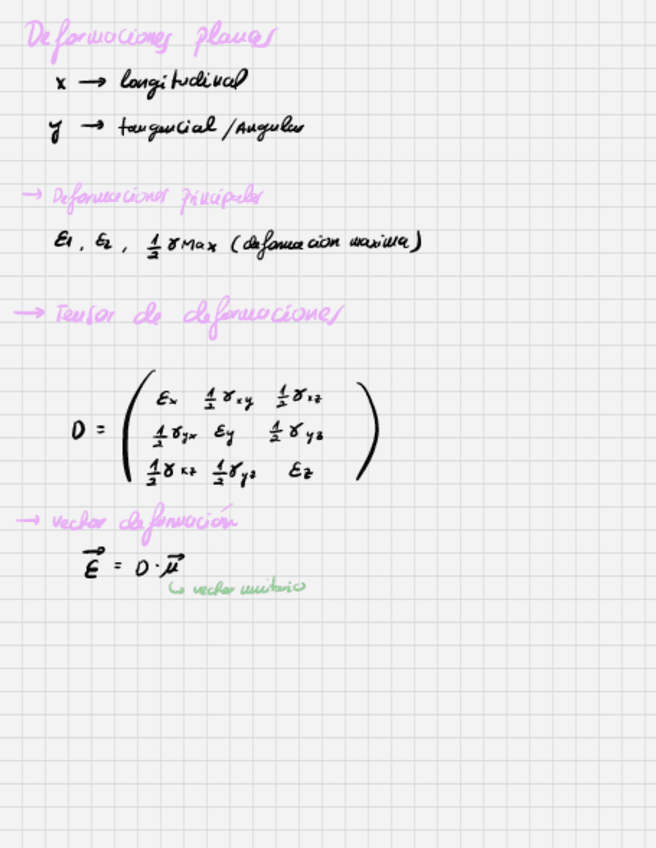 Deformaciones planas
x → longitudinal
y → tangencial / Angular
→ Deformaciones principales
ε1, ε2, 1/2 γMax (deformacion maxima)
→ Tensor de deformaciones
εx 1/2 γxy 1/2 γxz
D = 1/2 γyx εy 1/2 γyz
1/2 γxz 1/2 γyz εz
→ vector deformación
ε⃗ = D · μ⃗
↳ vector unitario